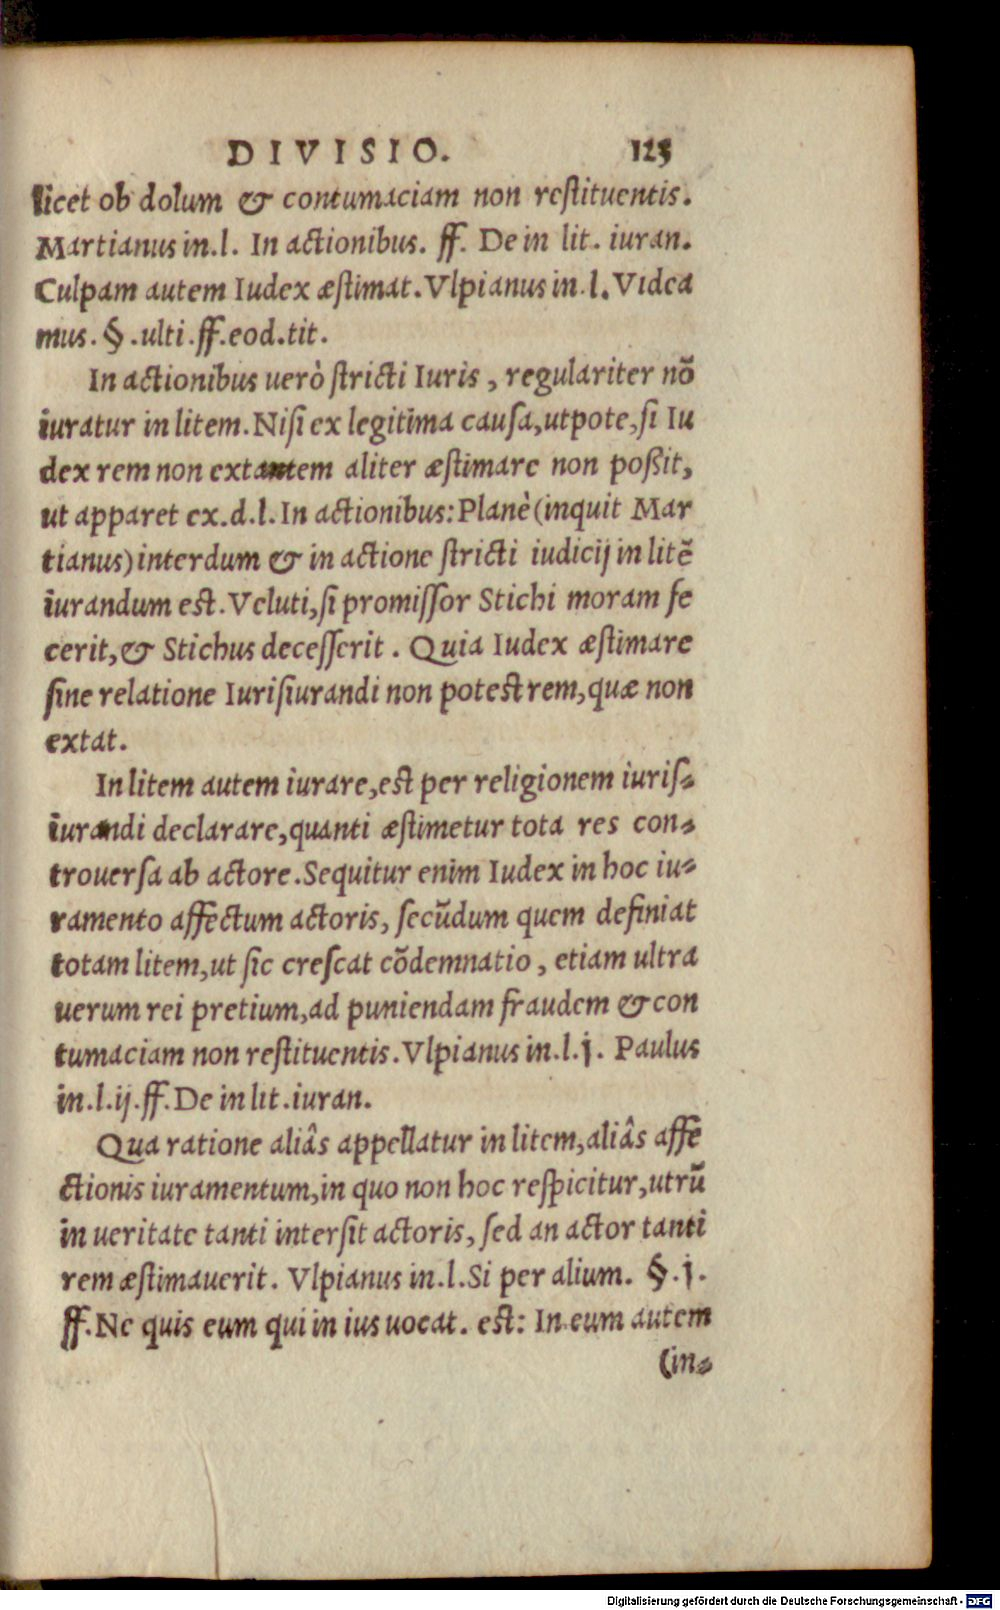 DIVISIO. 125
licet ob dolum & contumaciam non restituentis.
Martianus in.l. In actionibus. ff. De in lit. iuran.
Culpam autem Iudex æstimat. Vlpianus in.l. Videa
mus. §.ulti.ff.eod.tit.
In actionibus uerò stricti Iuris, regulariter nō
iuratur in litem. Nisi ex legitima causa, utpote, si Iu
dex rem non extantem aliter æstimare non possit,
ut apparet ex.d.l. In actionibus: Planè (inquit Mar
tianus) interdum & in actione stricti iudicij in litē
iurandum est. Veluti, si promissor Stichi moram fe
cerit, & Stichus decesserit. Quia Iudex æstimare
sine relatione Iurisiurandi non potest rem, quæ non
extat.
In litem autem iurare, est per religionem iuris-
iurandi declarare, quanti æstimetur tota res con-
trouersa ab actore. Sequitur enim Iudex in hoc iu-
ramento affectum actoris, secūdum quem definiat
totam litem, ut sic crescat cōdemnatio, etiam ultra
uerum rei pretium, ad puniendam fraudem & con
tumaciam non restituentis. Vlpianus in.l.j. Paulus
in.l.ij.ff. De in lit.iuran.
Qua ratione aliâs appellatur in litem, aliâs affe
ctionis iuramentum, in quo non hoc respicitur, utrū
in ueritate tanti intersit actoris, sed an actor tanti
rem æstimauerit. Vlpianus in.l. Si per alium. §.j.
ff. Ne quis eum qui in ius uocat. est: In eum autem
(in-
Digitalisierung gefördert durch die Deutsche Forschungsgemeinschaft - DFG